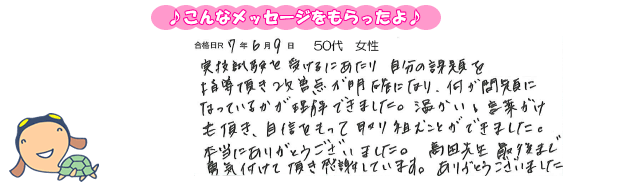 ♪こんなメッセージをもらったよ♪
合格日R 7 年 6 月 9 日 50代 女性
実技試験を受けるにあたり 自分の課題を
指導頂き改善点が明確になり、何が問題に
なっているかが理解できました。温かい言葉がけ
も頂き、自信をもって取り組むことができました。
本当にありがとうございました。 高田先生 最後まで
勇気付けて頂き感謝しています。ありがとうございました